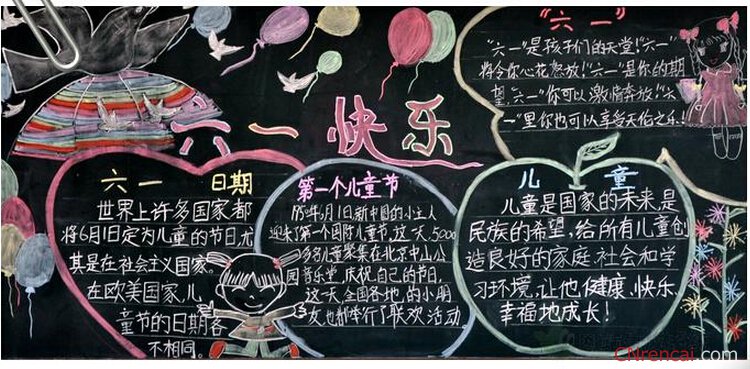 六一快乐
"六一"
"六一"是孩子们的天堂!"六一"
将令你心花怒放!"六一"是你的期
望,"六一"你可以激情奔放!"六
一"里你也可以享受天伦之乐!
六一 日期
世界上许多国家都
将6月1日定为儿童的节日,尤
其是在社会主义国家。
在欧美国家,儿
童节的日期各
不相同。
第一个儿童节
年6月1日新中国的小主人
迎来了第一个国际儿童节,这一天,5000
多名儿童聚集在北京中山公
园音乐堂,庆祝自己的节日,
这一天,全国各地的小朋
友也都举行了联欢活动
儿 童
儿童是国家的未来,是
民族的希望,给所有儿童创
造良好的家庭、社会和学
习环境,让他健康、快乐、
幸福地成长!
CNrencai.com